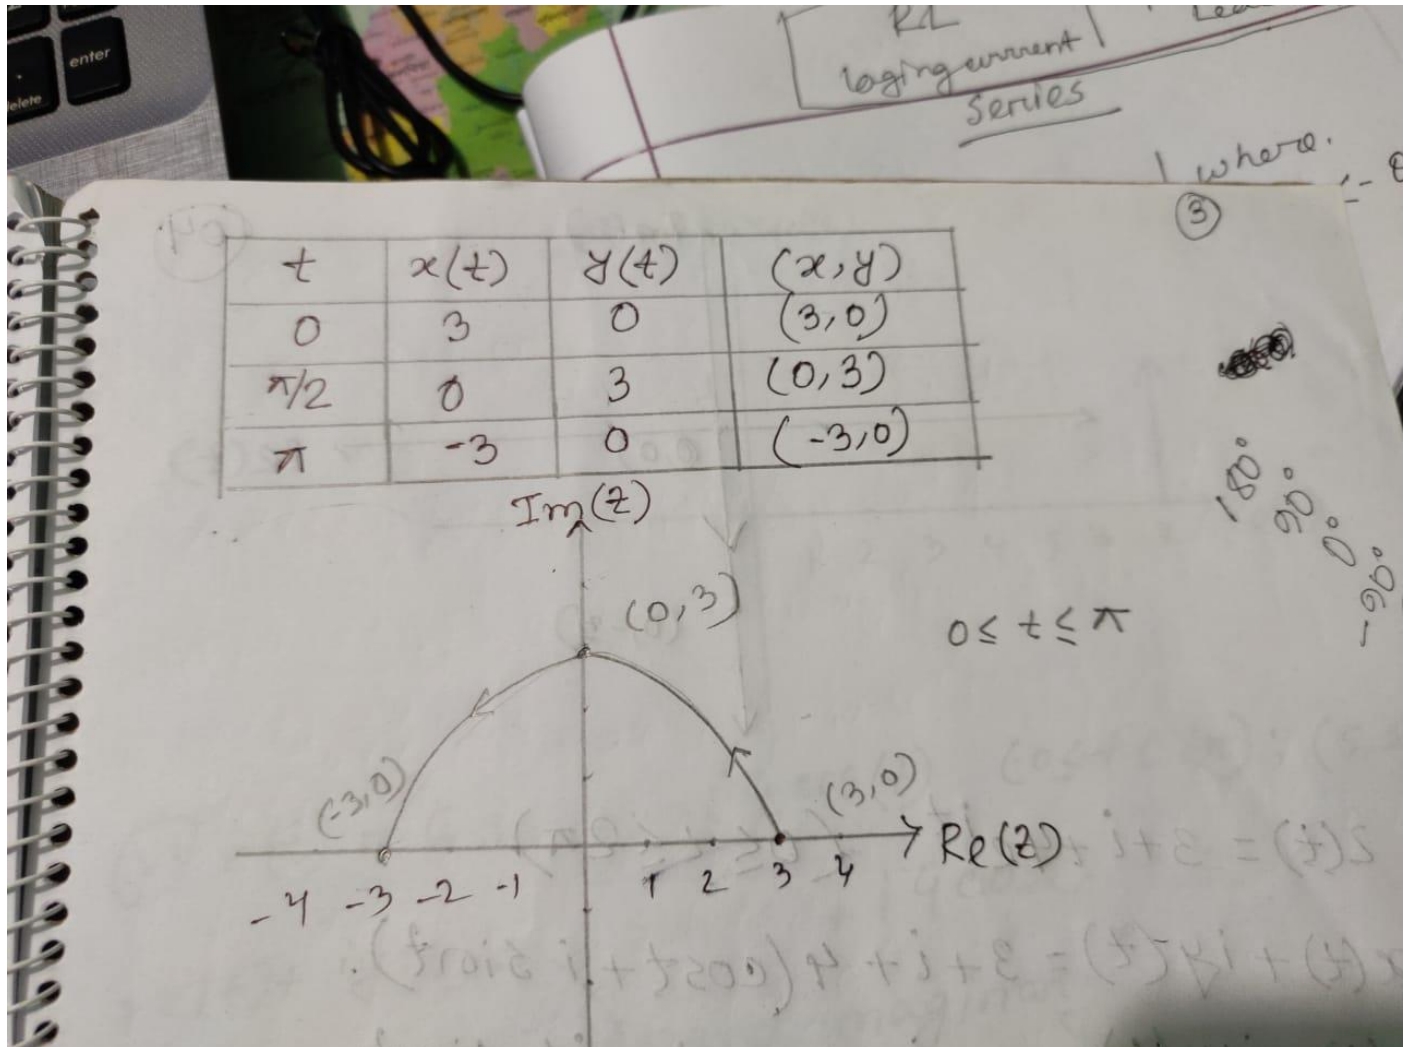 enter
delete
RL
laging current
Series
where.
3
t x(t) y(t) (x,y)
0 3 0 (3,0)
π/2 0 3 (0,3)
π -3 0 (-3,0)
Im(z)
(0,3)
0≤ t ≤ π
(-3,0)
(3,0)
Re(z)
-4 -3 -2 -1 1 2 3 4
180°
90°
0°
-90°